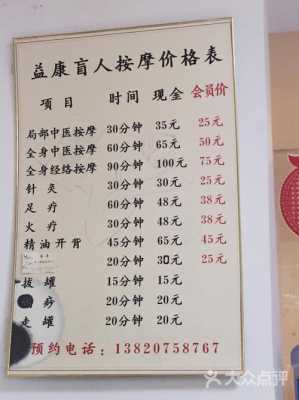 益康盲人按摩价格表
项目 时间 现金 会员价
局部中医按摩 30分钟 35元 25元
全身中医按摩 60分钟 65元 50元
全身经络按摩 90分钟 100元 75元
针灸 30分钟 30元 25元
足疗 60分钟 48元 38元
火疗 30分钟 48元 38元
精油开背 45分钟 65元 45元
20分钟 30元 25元
拔罐 15分钟 15元
痧 20分钟 20元
走罐 20分钟 20元
预约电话：13820758767
大众点评